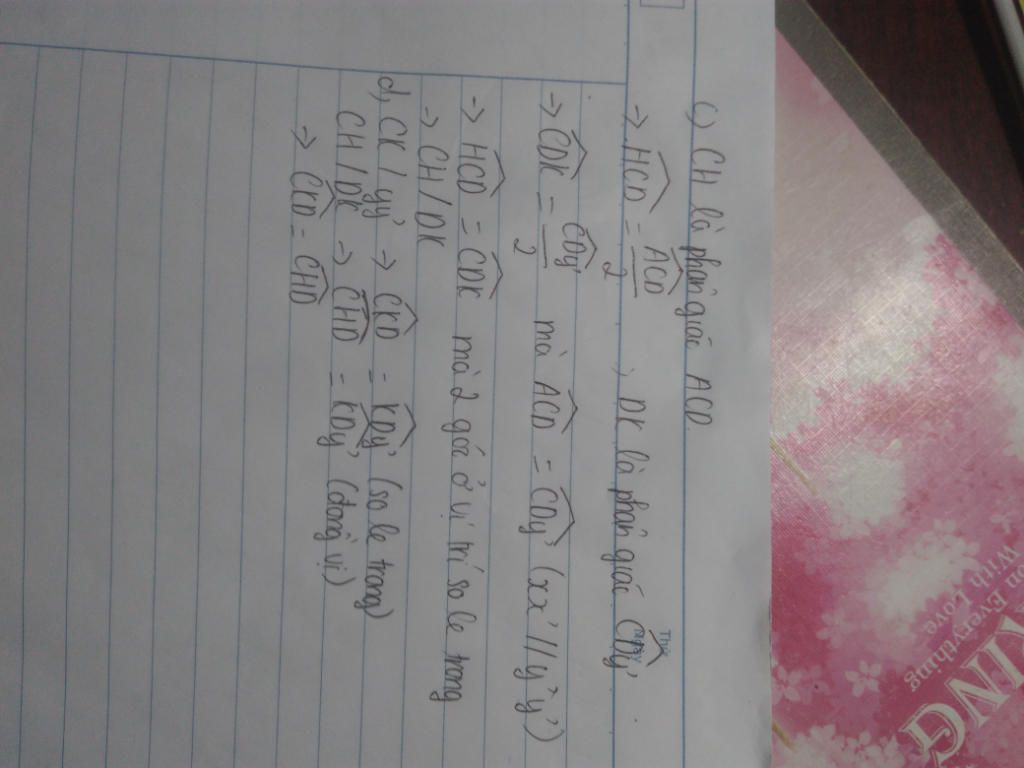 c) CH là phân giác ACD.
→ HCD = ACD / 2 , DK là phân giác CDy'
→ CDK = CDy' / 2 mà ACD = CDy' (xx' // y'y')
→ HCD = CDK mà 2 góc ở vị trí so le trong
→ CH / DK
d, CK / yy' → CKD = KDy' (so le trong)
CH / DK → CHD = KDy' (đồng vị)
→ CKD = CHD
Thứ
Everything
With Love
ING